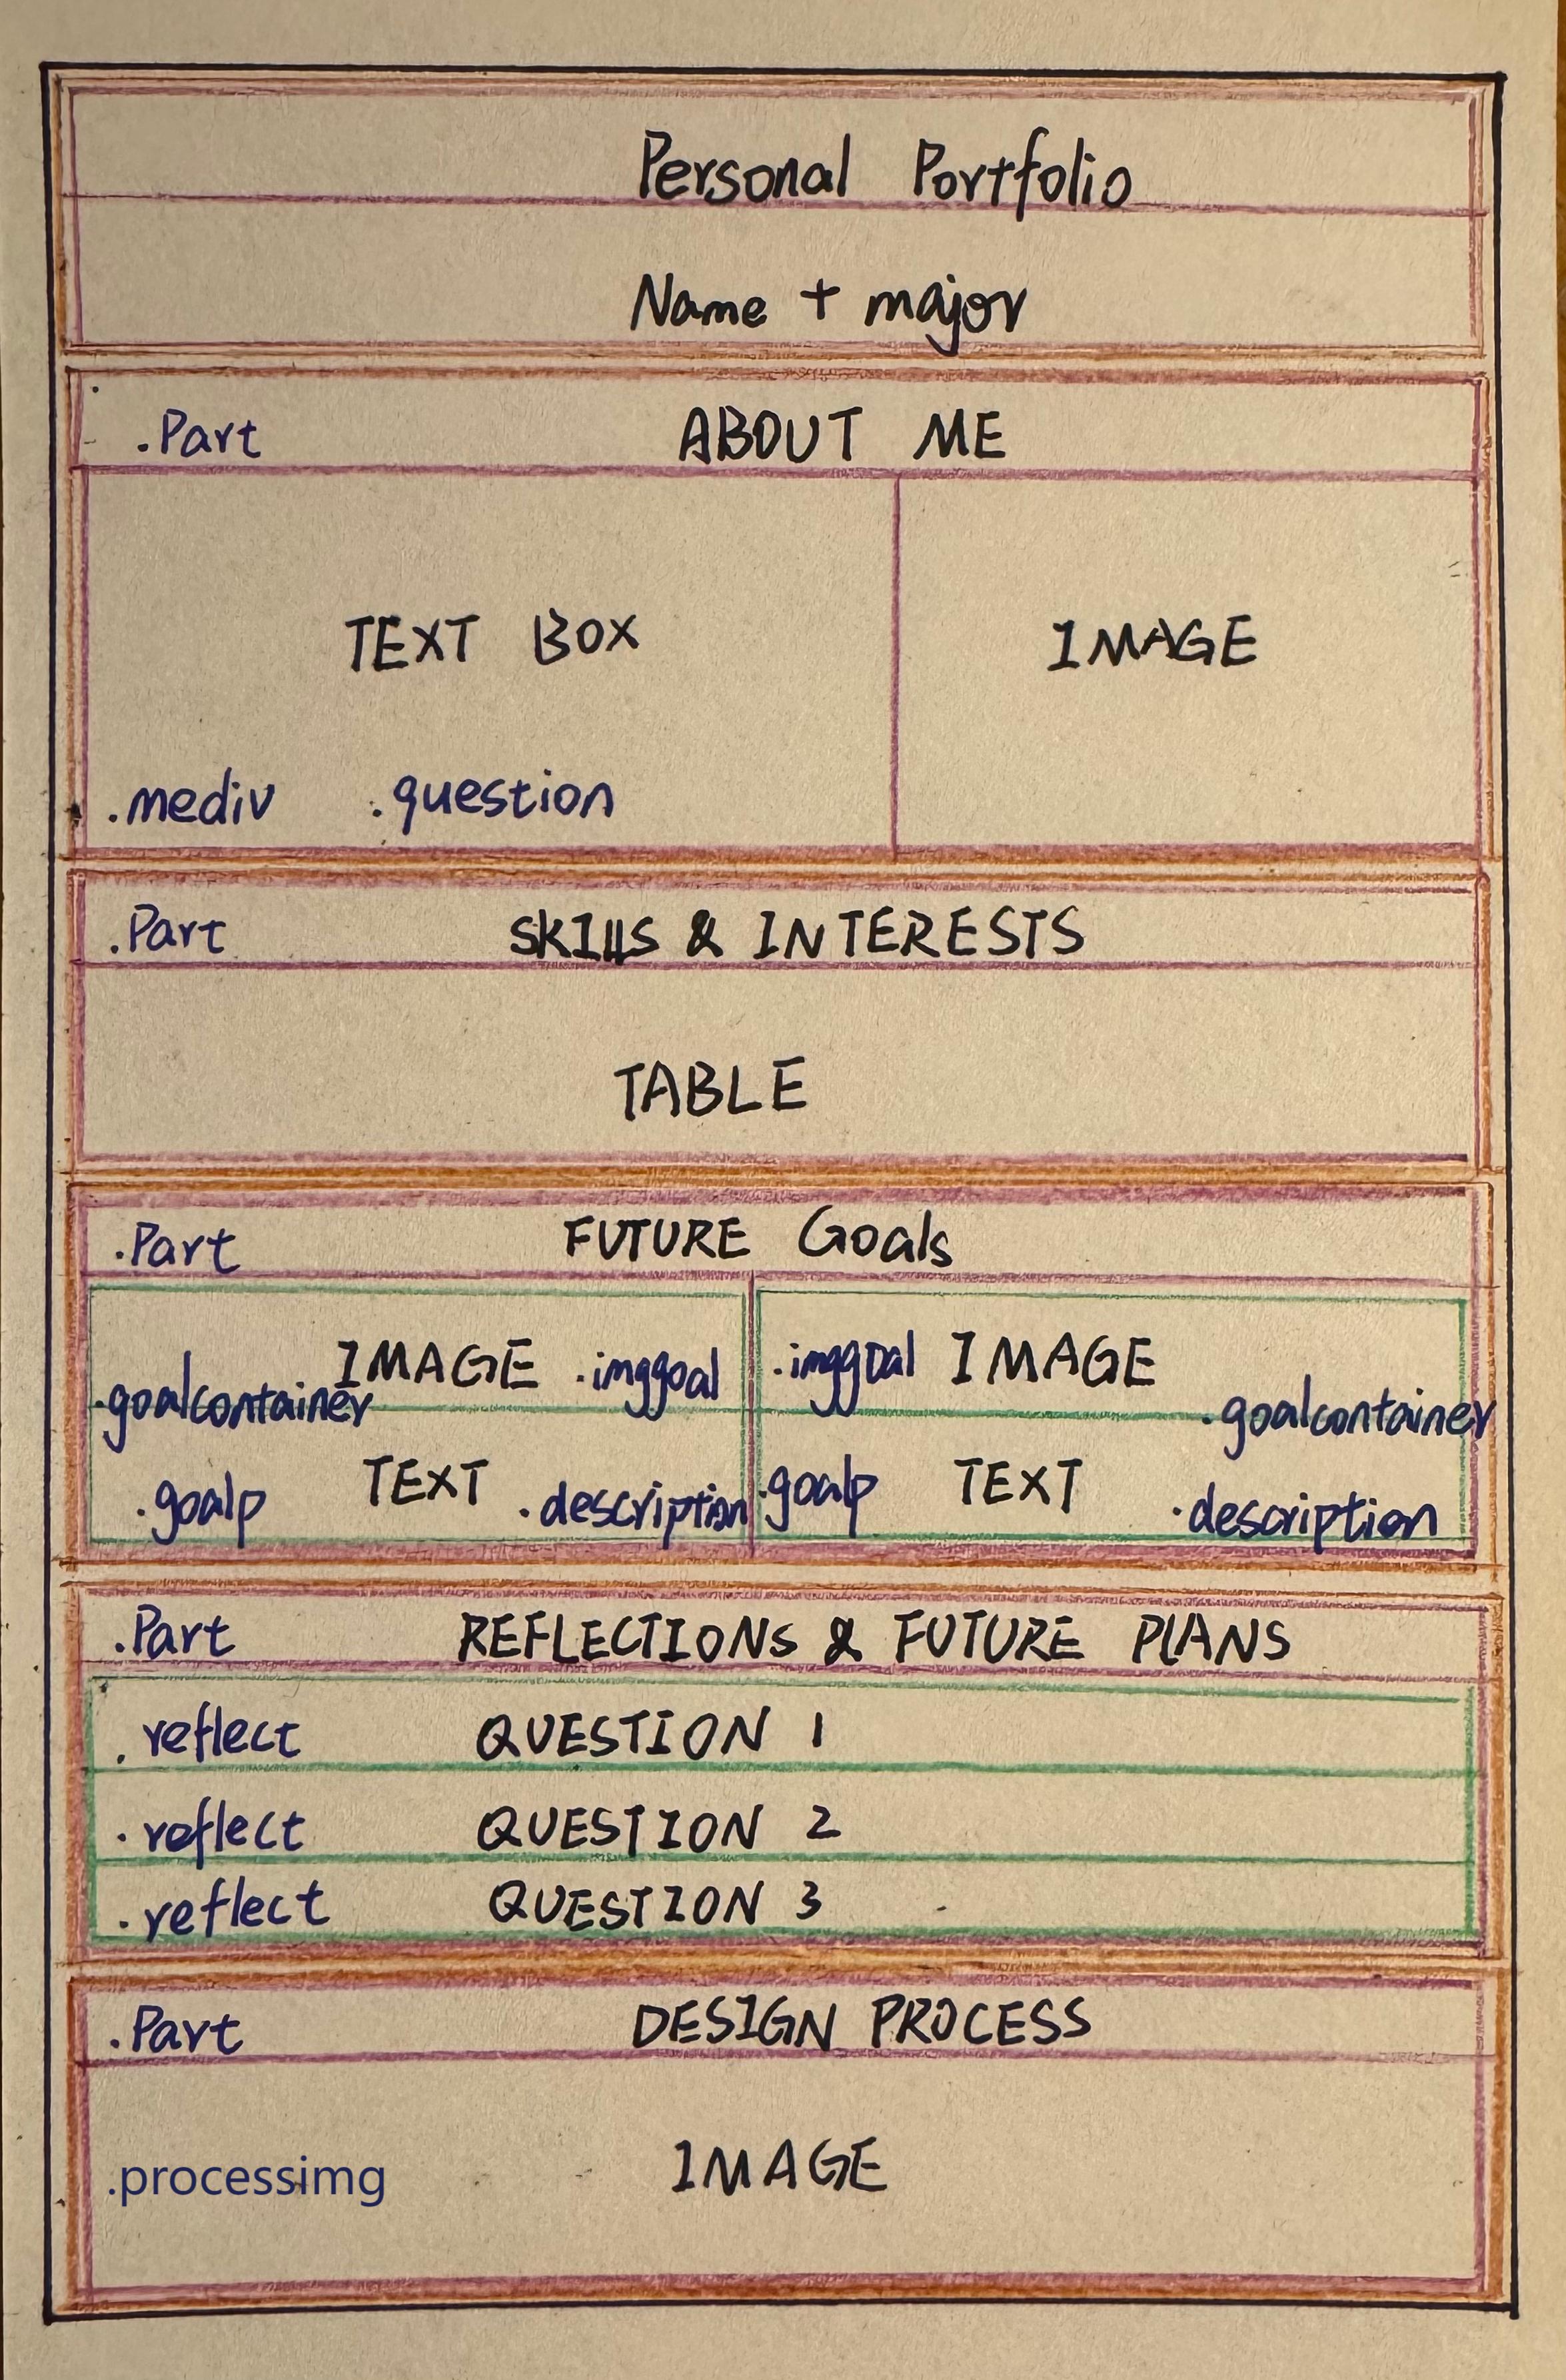 Personal Portfolio
Name + major
.Part ABOUT ME
TEXT BOX IMAGE
.mediv .question
.Part SKIllS & INTERESTS
TABLE
.Part FUTURE Goals
IMAGE .imggoal .imggoal IMAGE
.goalcontainer .goalcontainer
.goalp TEXT .description .goalp TEXT .description
.Part REFLECTIONS & FUTURE PLANS
.reflect QUESTION 1
.reflect QUESTION 2
.reflect QUESTION 3
.Part DESIGN PROCESS
.processimg IMAGE